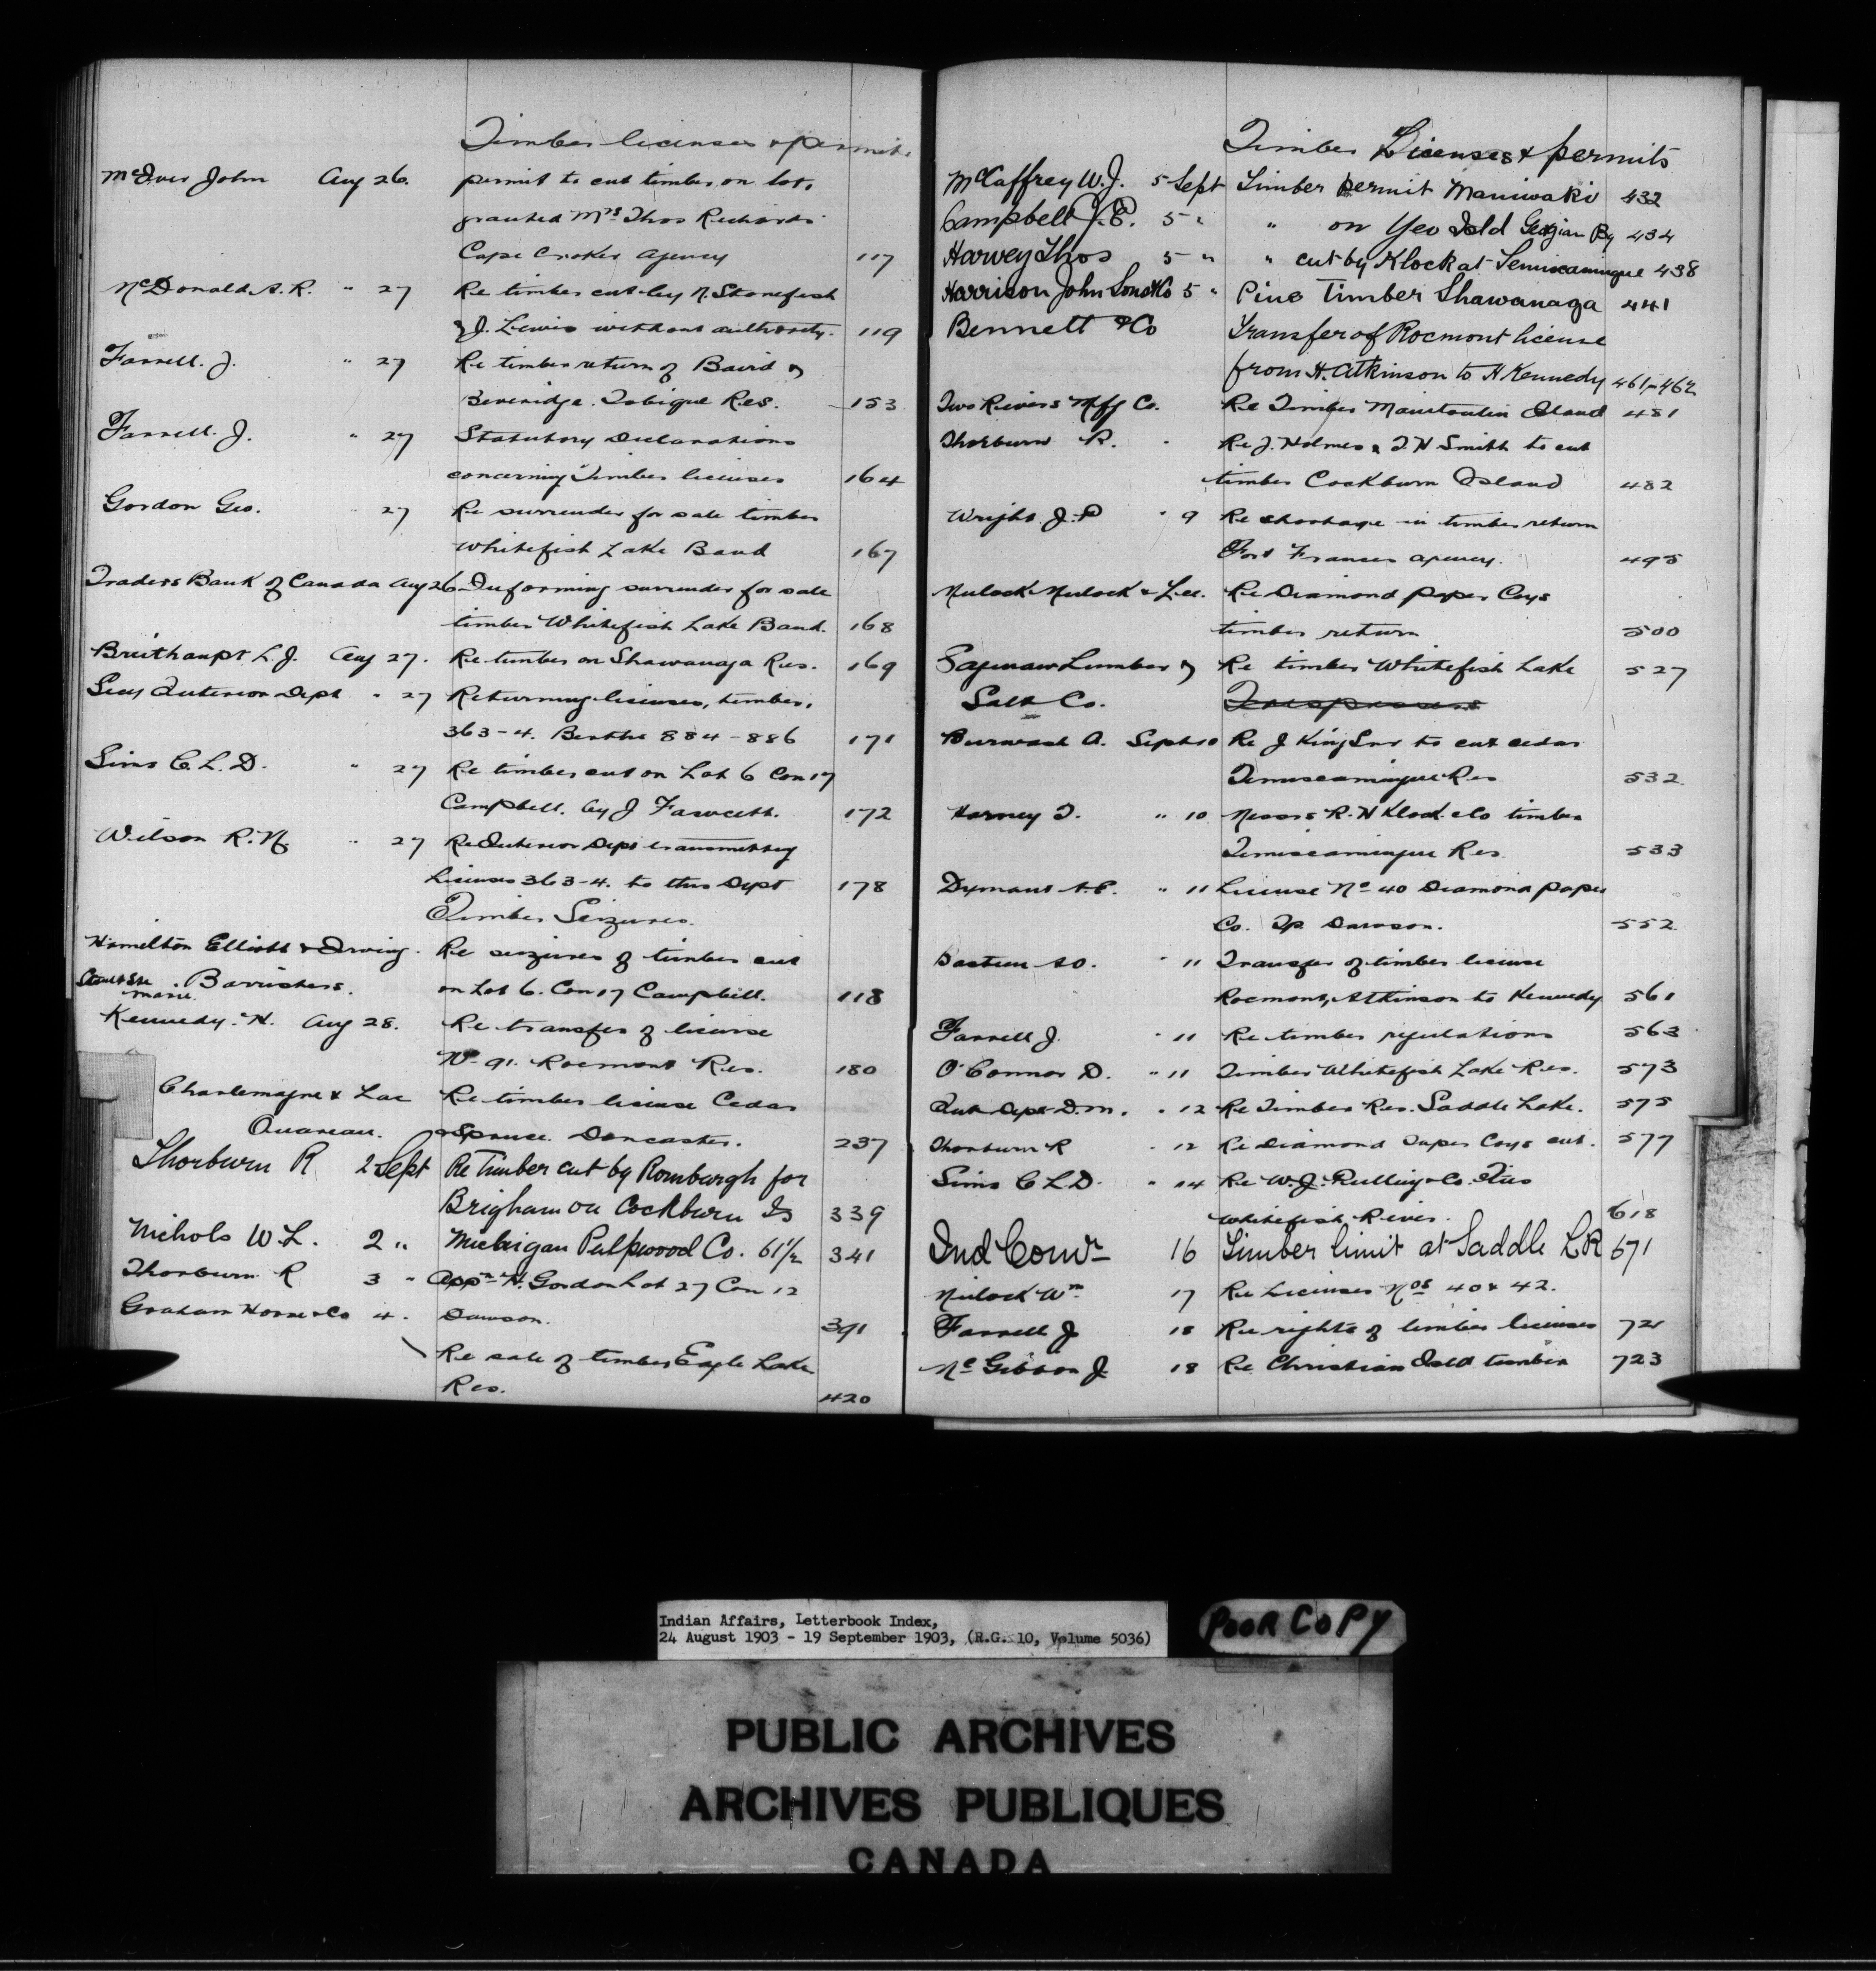 Timber licenses & permits
McIver John Aug 26. permit to cut timber on lots
granted Mrs Thos Richards
Cape Croker Agency 117
McDonald A. R. " 27 Re timber cut by N. Stonefish
& J. Lewis without authority. 119
Farrell. J. " 27 Re timber return of Baird &
Beveridge. Tobique Res. 153
Farrell. J. " 27 Statutory Declarations
concerning Timber licenses 164
Gordon Geo. " 27 Re surrender for sale timber
Whitefish Lake Band 167
Traders Bank of Canada Aug 26 Informing surrender for sale
timber Whitefish Lake Band. 168
Breithaupt L. J. Aug 27. Re timber on Shawanaga Res. 169
Secy Interior Dept " 27 Returning licenses, timber,
363-4. Berths 884-886 171
Sims C. L. D. " 27 Re timber cut on Lot 6 Con 17
Campbell. by J Fawcett. 172
Wilson R. N. " 27 Re Interior Dept transmitting
Licenses 363-4. to this Dept 178
Timber Seizures.
Hamilton Elliott & Irving. Re seizures of timber cut
Sault Ste Marie. Barristers. on Lot 6. Con 17 Campbell. 118
Kennedy. H. Aug 28. Re transfer of license
No 91. Rocmont Res. 180
Charlemagne & Lac Re timber license Cedar
Ouareau. & Spruce. Doncaster. 237
Thorburn R 2 Sept Re Timber cut by Romburgh for
Brigham on Cockburn Is 339
Nichols W L. 2 " Michigan Pulpwood Co. 61 1/2 341
Thorburn R 3 " Appn H. Gordon Lot 27 Con 12
Graham Horne & Co 4. Dawson. 391
Re sale of timber Eagle Lake
Res. 420
Timber Licenses & permits
McCaffrey W. J. 5 Sept Timber permit Maniwaki 432
Campbell J. E. 5 " " on Yeo Isld Geogian By 434
Harvey Thos 5 " " cut by Klock at Temiscamingue 438
Harrison John Sons & Co 5 " Pine Timber Shawanaga 441
Bennett & Co Transfer of Rocmont license
from H. Atkinson to H Kennedy 461-462
Two Rivers Mfg Co. Re Timber Manitoulin Island 481
Thorburn R. " Re J. Holmes & T. H Smith to cut
timber Cockburn Island 482
Wright J. P " 9 Re shortage in timber return
Fort Frances agency. 495
Mulock Mulock & Lee. Re Diamond paper Coys
timber return 500
Saginaw Lumber & Re timber Whitefish Lake 527
Salt Co. Trespassers
Burwash A. Sept 10 Re J King Snr to cut cedar
Temiscamingue Res 532
Harney T. " 10 Messrs R. H Klock & Co timber
Temiscamingue Res. 533
Dyment A. E. " 11 License No 40 Diamond paper
Co. Tp. Dawson. 552
Bastien A O. " 11 Transfer of timber license
Rocmont, Atkinson to Kennedy 561
Farrell J. " 11 Re timber regulations 563
O'Connor D. " 11 Timber Whitefish Lake Res. 573
Int Dept D. M. " 12 Re Timber Res. Saddle Lake. 575
Thorburn R " 12 Re Diamond Paper Coys cut. 577
Sims C L. D. " 14 Re W. J. Pulling & Co. Ties
Whitefish River. 618
Ind Comr 16 Timber limit at Saddle L R 671
Mulock Wm 17 Re Licenses Nos 40 & 42.
Farrell J 18 Re rights of timber licenses 721
McGibbon J 18 Re Christian Isld timber 723
Indian Affairs, Letterbook Index,
24 August 1903 - 19 September 1903, (R.G. 10, Volume 5036)
POOR COPY
PUBLIC ARCHIVES
ARCHIVES PUBLIQUES
CANADA